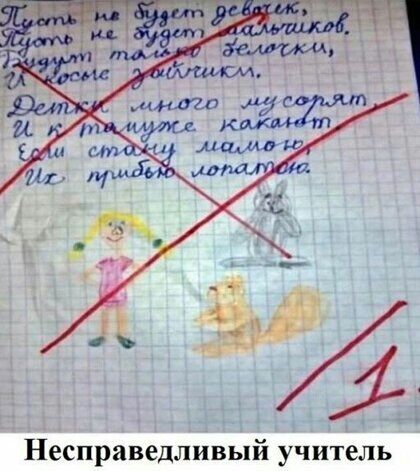 Пусть не будет девочек,
Пусть не будет мальчиков.
Будут только белочки,
И косые зайчики.
Детки много мусорят
И к тамуже какают
Если стану мамою,
Их прибью лопатою.
1
Несправедливый учитель